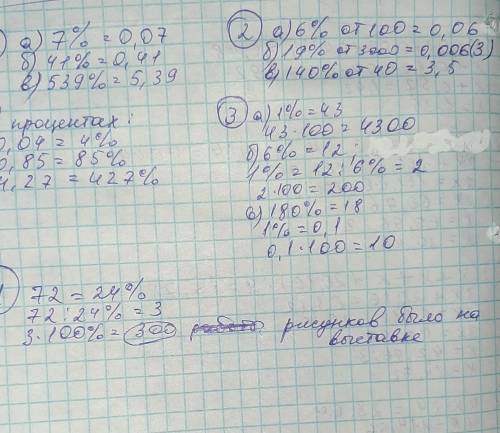 а) 7% = 0,07
б) 41% = 0,41
в) 539% = 5,39
процентах:
0,04 = 4%
0,85 = 85%
4,27 = 427%
2 а) 6% от 100 = 0,06
б) 19% от 3000 = 0,006(3)
в) 140% от 40 = 3,5
3 а) 1% = 43
43·100 = 4300
б) 6% = 12
1% = 12 : 6% = 2
2·100 = 200
в) 180% = 18
1% = 0,1
0,1·100 = 10
72 = 24%
72 : 24% = 3
3·100% = 300 рисунков было на
выставке